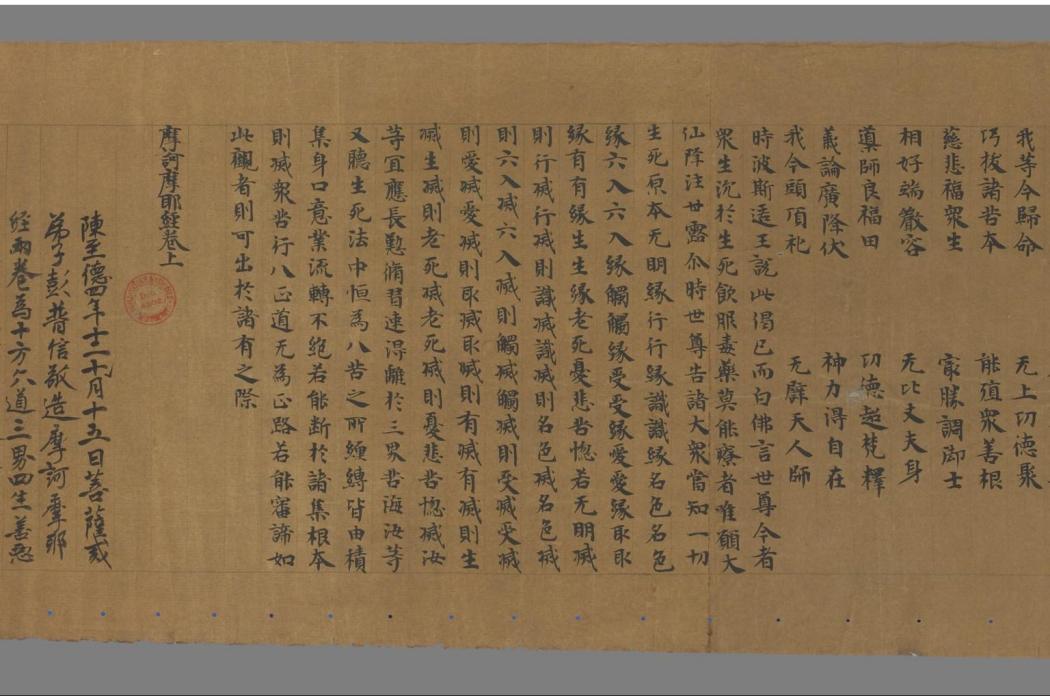 我等今歸命　无上功德聚
巧拔諸苦本　能殖衆善根
慈悲福衆生　㝡勝調御士
相好端嚴容　无比丈夫身
導師良福田　功德超梵釋
義論廣降伏　神力得自在
我今頭頂礼　无辟天人師
時波斯匿王說此偈已而白佛言世尊今者
衆生沉於生死飲服毒藥莫能療者唯願大
仙降注甘露尒時世尊告諸大衆當知一切
生死原本无明緣行行緣識識緣名色名色
緣六入六入緣觸觸緣受受緣愛愛緣取取
緣有有緣生生緣老死憂悲苦惱若无明滅
則行滅行滅則識滅識滅則名色滅名色滅
則六入滅六入滅則觸滅觸滅則受滅受滅
則愛滅愛滅則取滅取滅則有滅有滅則生
滅生滅則老死滅老死滅則憂悲苦惱滅汝
等宜應長懃脩習速得離於三界苦海汝等
又聽生死法中恒為八苦之所纏縛皆由積
集身口意業流轉不絕若能斷於諸集根本
則滅衆苦行八正道无為正路若能審諦如
此觀者則可出於諸有之際
摩訶摩耶經卷上
陳至德四年十二月十五日菩薩戒
弟子彭普信敬造摩訶摩耶
經兩卷為十方六道三界四生善惡